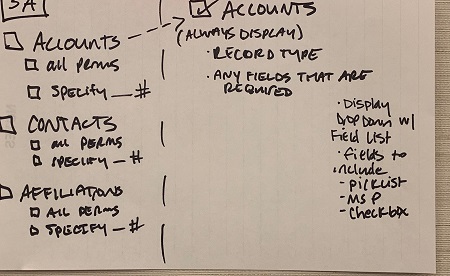 SA
ACCOUNTS
all perms
SPECIFY __ #
CONTACTS
all PERMS
SPECIFY - #
AFFILIATIONS
ALL PERMS
SPECIFY - #
ACCOUNTS
(ALWAYS DISPLAY)
· RECORD TYPE
· ANY FIELDS THAT ARE
REQUIRED
· Display
DROPDOWN w/
Field LIST
· fields to
include
- picklist
- MSP
- checkbox